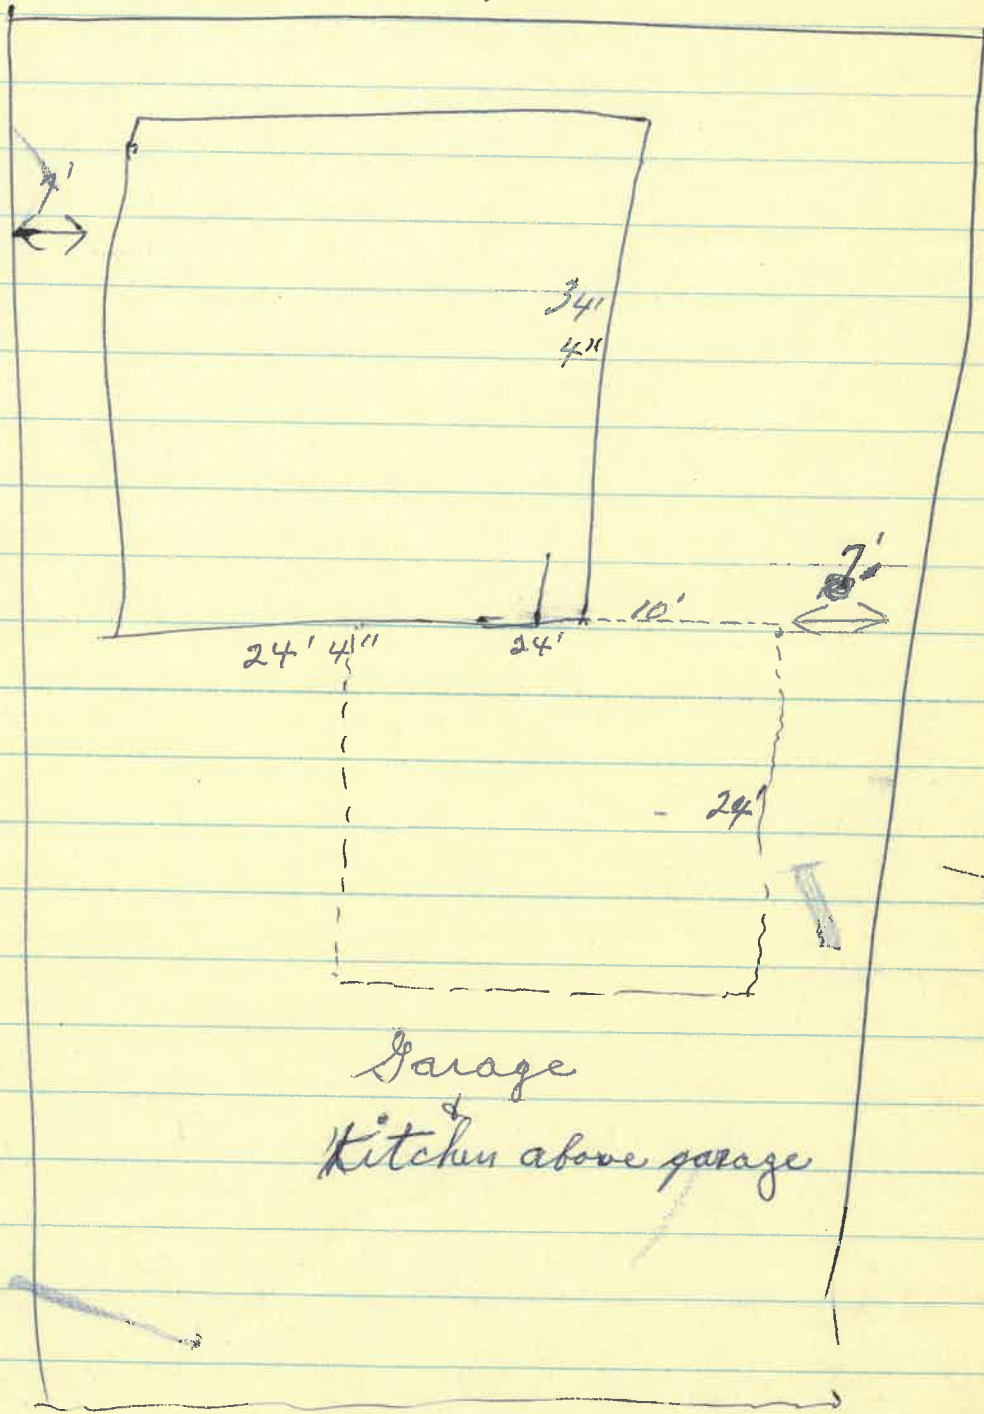 7'
34'
4"
7'
10'
24' 4"
24'
24'
Garage
&
Kitchen above garage